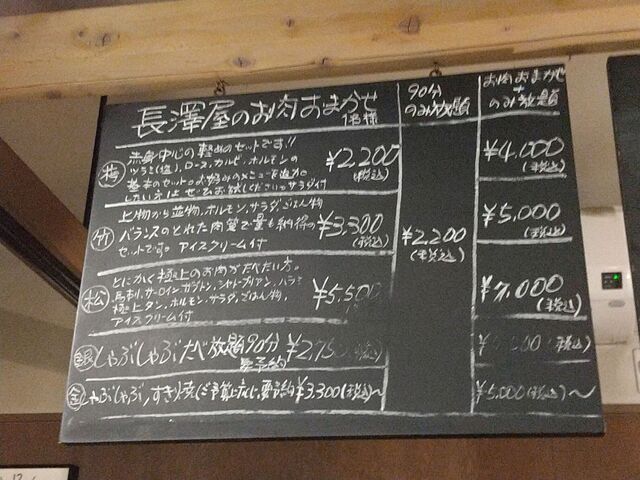 長澤屋のお肉おまかせ
1名様
90分
のみ放題
お肉おまかせ
+
のみ放題
梅
赤身中心の軽めのセットです!!
ツラミ(塩)、ロース、カルビ、ホルモンの
基本のセット。お好みのメニューを追加
したい方はぜひお試しください。サラダ付
¥2,200
(税込)
¥4,000
(税込)
竹
上物から並物、ホルモン、サラダ、ごはん物
バランスのとれた内容で量も納得の
セットです。アイスクリーム付
¥3,300
(税込)
¥2,200
(税込)
¥5,000
(税込)
松
とにかく極上のお肉が食べたい方。
馬刺、サーロイン、カブトン、シャトーブリアン、ハラミ
極上タン、ホルモン、サラダ、ごはん物、
アイスクリーム付
¥5,500
¥7,000
(税込)
銀 しゃぶしゃぶ食べ放題90分
要予約
¥2,750(税込)
(税込)
金 しゃぶしゃぶ、すき焼(ご予算に応じ、要予約 ¥3,300(税込)～
¥5,000(税込)～